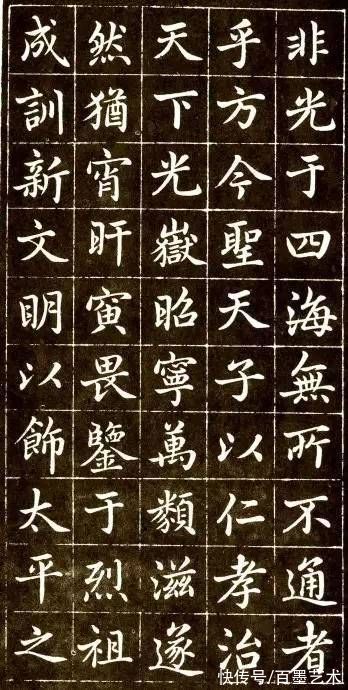 非光于四海無所不通者
乎方今聖天子以仁孝治
天下光嶽昭寧萬類滋遂
然猶宵旰寅畏鑒于烈祖
成訓新文明以飾太平之
快传号/百墨艺术